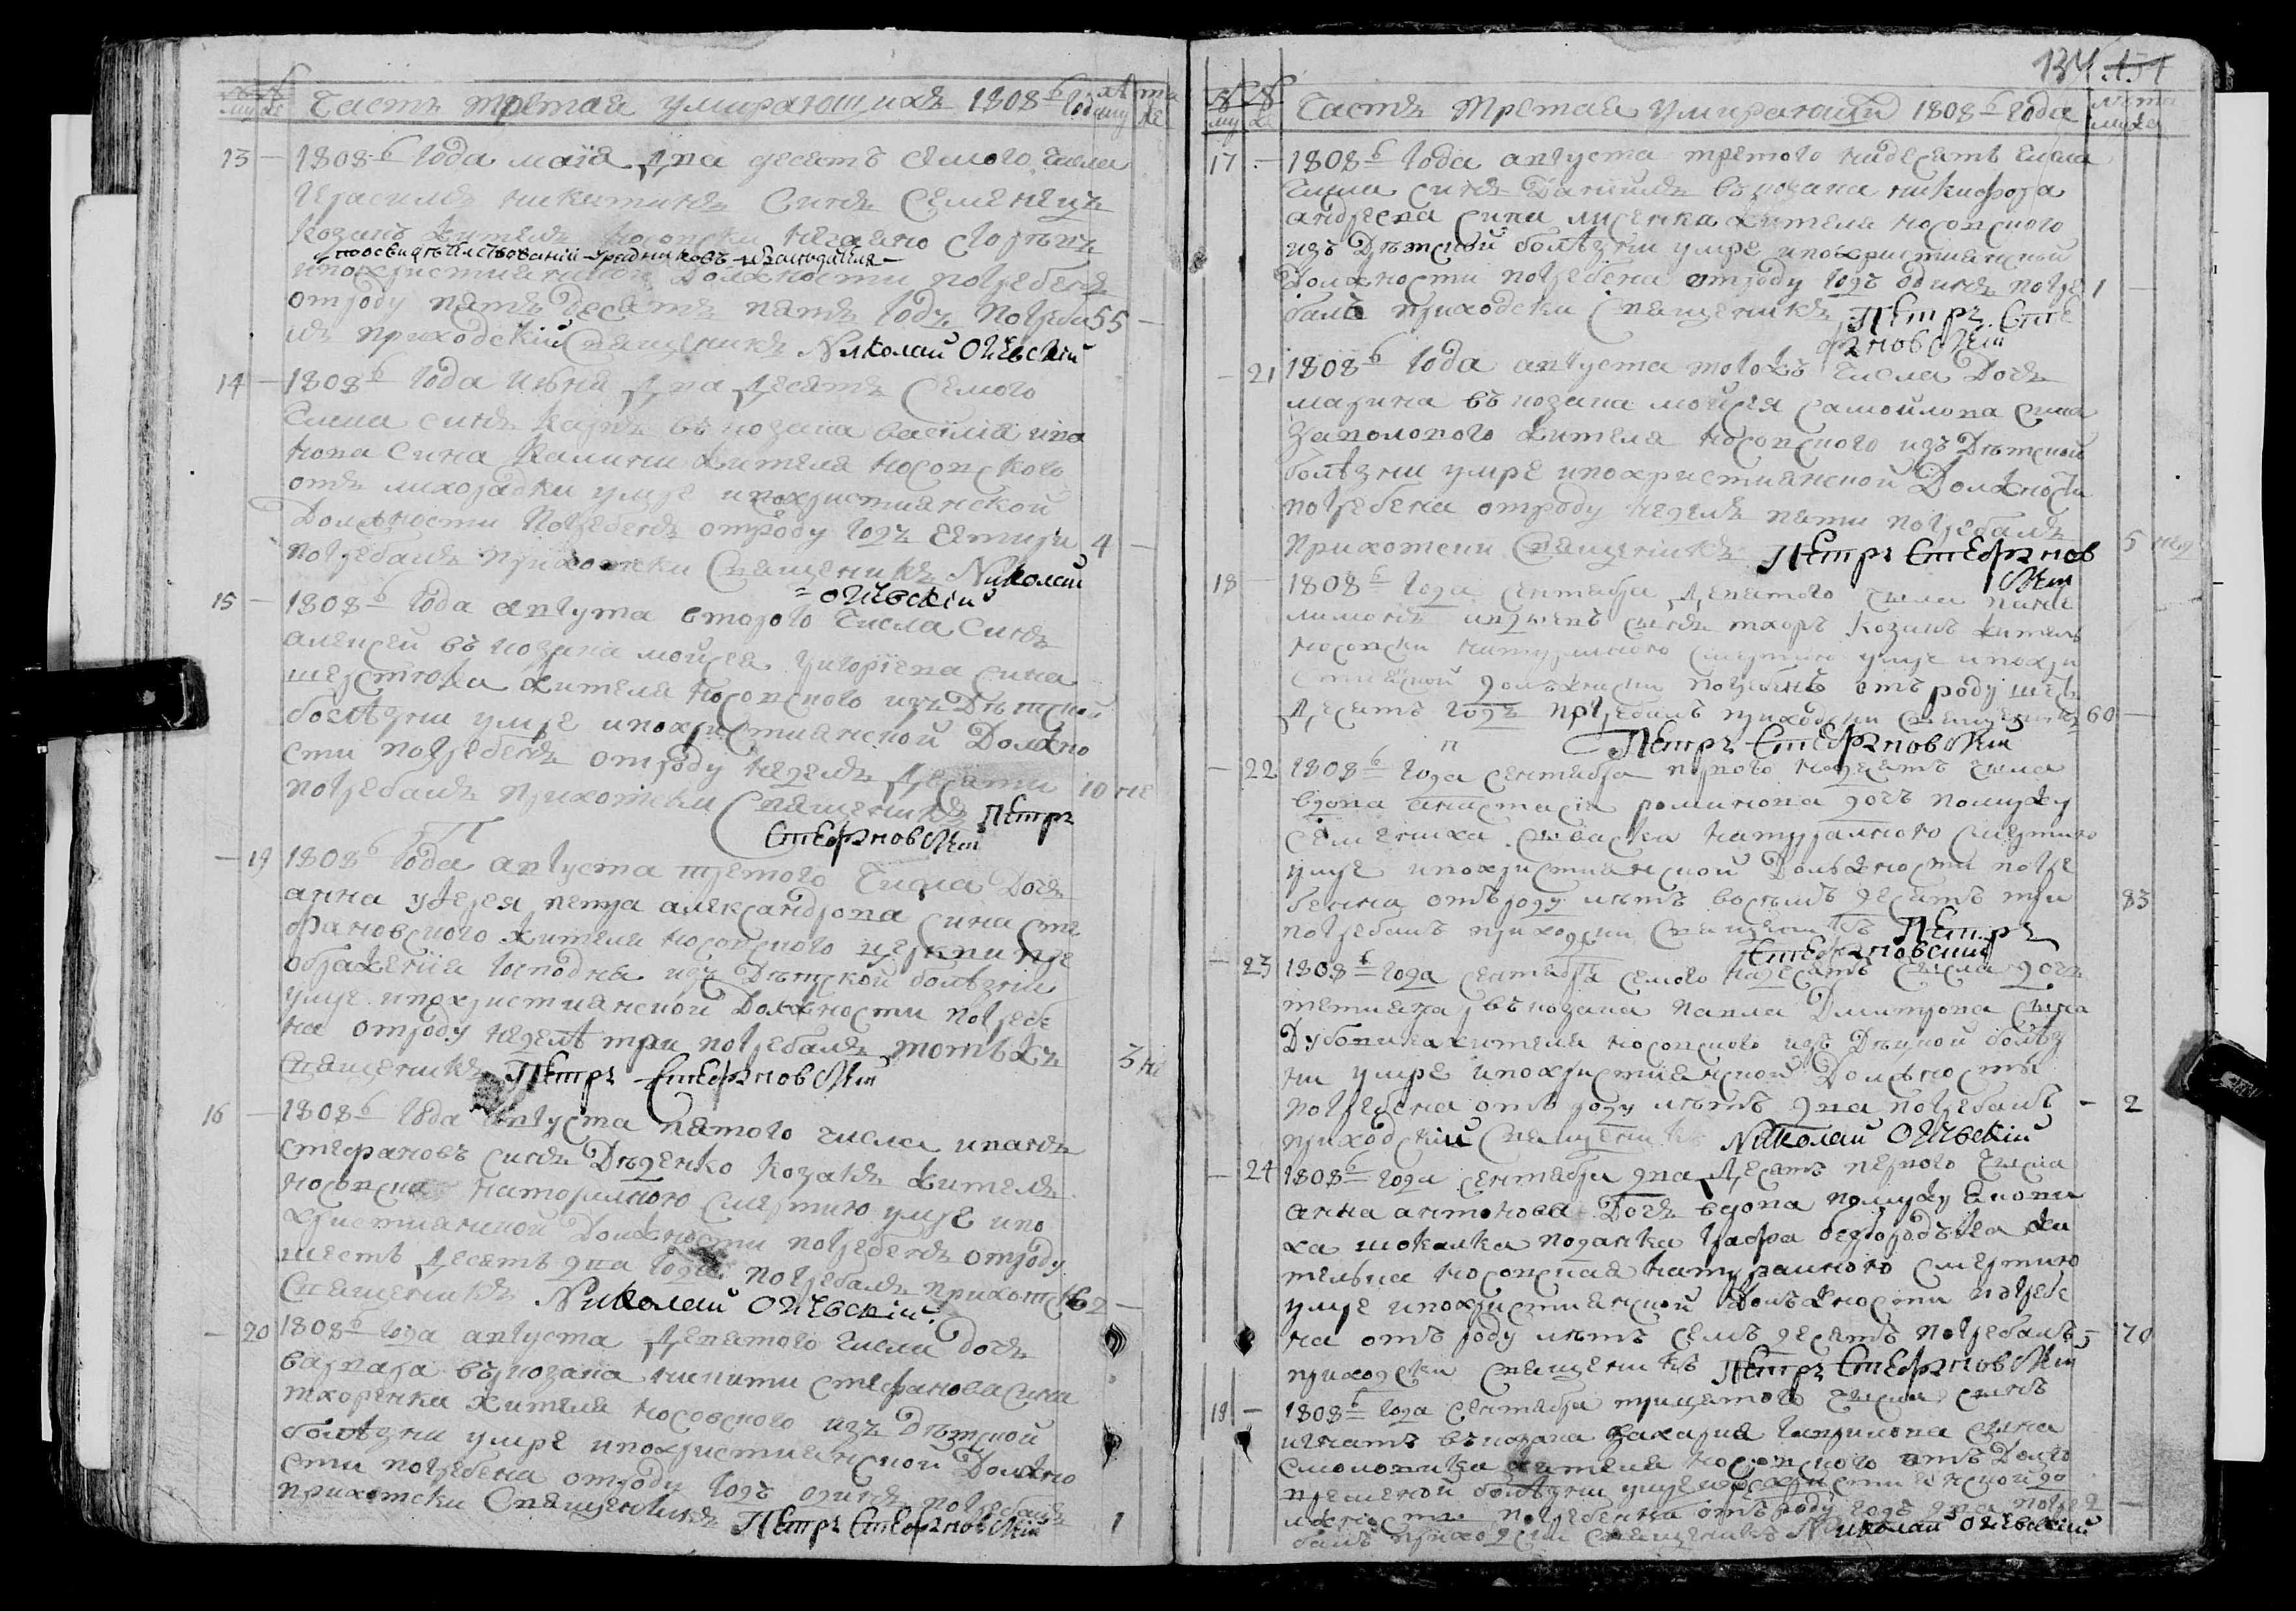 му же Часть третая умирающихъ 1808 года лѣта му же
13 — 1808 года маія два десять семого числа
Герасимъ никитинъ синъ Семенецъ
козакъ житель
по освидѣтельствованіи
и по христианской должности погребенъ
отроду пять десять пять годъ погребал 55 —
ъ приходскій священникъ Николай Огіевскій
14 — 1808 года июня два десять семого
числа синъ Карпъ въ козака василія ива
нова сина Калини жителя носовского
отъ лихорадки умре и по христианской
должности погребенъ отроду годъ четири 4 —
погребалъ приходски священникъ Николай
Огіевскій
15 — 1808 года августа второго числа синъ
алексей въ козака мойсея григоріева сина
шерстюка жителя носовского изъ дѣтской
болѣзни умре и по христианской должно
сти погребенъ отроду недель десяти 10 не
погребалъ прихотски священникъ Петръ
Стефановскій
— 19 1808 года августа третого числа дочь
анна у иерея петра александрова сина сте
фановского жителя носовского церкви пре
ображения господня изъ дѣтской болѣзни
умре и по христианской должности погребе
на отроду недель три погребалъ тотъ жъ 3 не
священникъ Петръ Стефановскій
16 — 1808 года августа пятого числа иванъ
стефановъ синъ Дѣденко козакъ житель
носовски натуралною смертию умре и по
христианской должности погребенъ отроду
шесть десять два года погребалъ прихотск 62 —
священникъ Николай Огіевскій
— 20 1808 года августа девятого числа дочь
варвара въ козака никити стефанова сина
тхоренка жителя носовского изъ дѣтской
болѣзни умре и по христианской должно
сти погребена отроду годъ одинъ погребалъ
прихотски священникъ Петръ Стефановскій 1
134
му же Часть третая умирающи 1808 года лѣта му же
17 — 1808 года августа третого надесять числа
числа синъ Даниилъ въ козака никифора
андреева сина лисенка жителя носовского
изъ дѣтской болѣзни умре и по христианской
должности погребенъ отроду годъ одинъ погре 1 —
балъ приходски священникъ Петръ Сте
фановскій
— 21 1808 года августа того жъ числа дочь
марина въ козака мойсея самойлова сина
заполового жителя носовского изъ дѣтской
болѣзни умре и по христианской должности
погребена отроду недель пяти погребалъ
прихотски священникъ Петръ Стефанов 5 нед
скій
18 — 1808 года сентября девятого числа
синъ тхоръ козакъ житель
носовски натуралною смертию умре и по хри
стианской должности погребенъ отъ роду шесть
десять годъ погребалъ приходски священникъ 60 —
Петръ Стефановскій
— 22 1808 года сентября первого надесять числа
вдова анастасія романова дочь по мужу
Семениха натуралною смертию
умре и по христианской должности погре
бенна отъ роду лѣтъ восемъ десятъ три 83
погребалъ приходски священникъ Петръ
Стефановский
— 23 1808 года сентября семого надесять числа дочь
татияна въ козака павла Дмитрова сина
Дубовика жителя носовского изъ дѣтской болѣз
ни умре и по христианской должности
погребена отъ роду лѣтъ два погребалъ - 2
приходскій священникъ Николай Огіевскій
— 24 1808 года сентября два десять первого числа
анна антонова дочь вдова по мужу
подданка графа безбородька жи
телька носовская натуралною смертию
умре и по христианской должности погребе
на отъ роду лѣтъ семъ десятъ погребалъ 70
приходски священникъ Петръ Стефановскій
19 — 1808 года сентября трицятого числа синъ
игнатъ въ козака захария гаврилова сина
жителя носовского отъ долго
временой болѣзни умре и по христианской до
лжности погребенъ отъ роду годъ два погре 2 —
балъ приходски священникъ Николай Огіевский